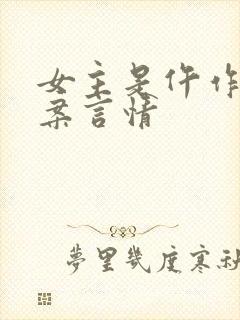 女主是仵作
案言情
夢里幾度寒秋